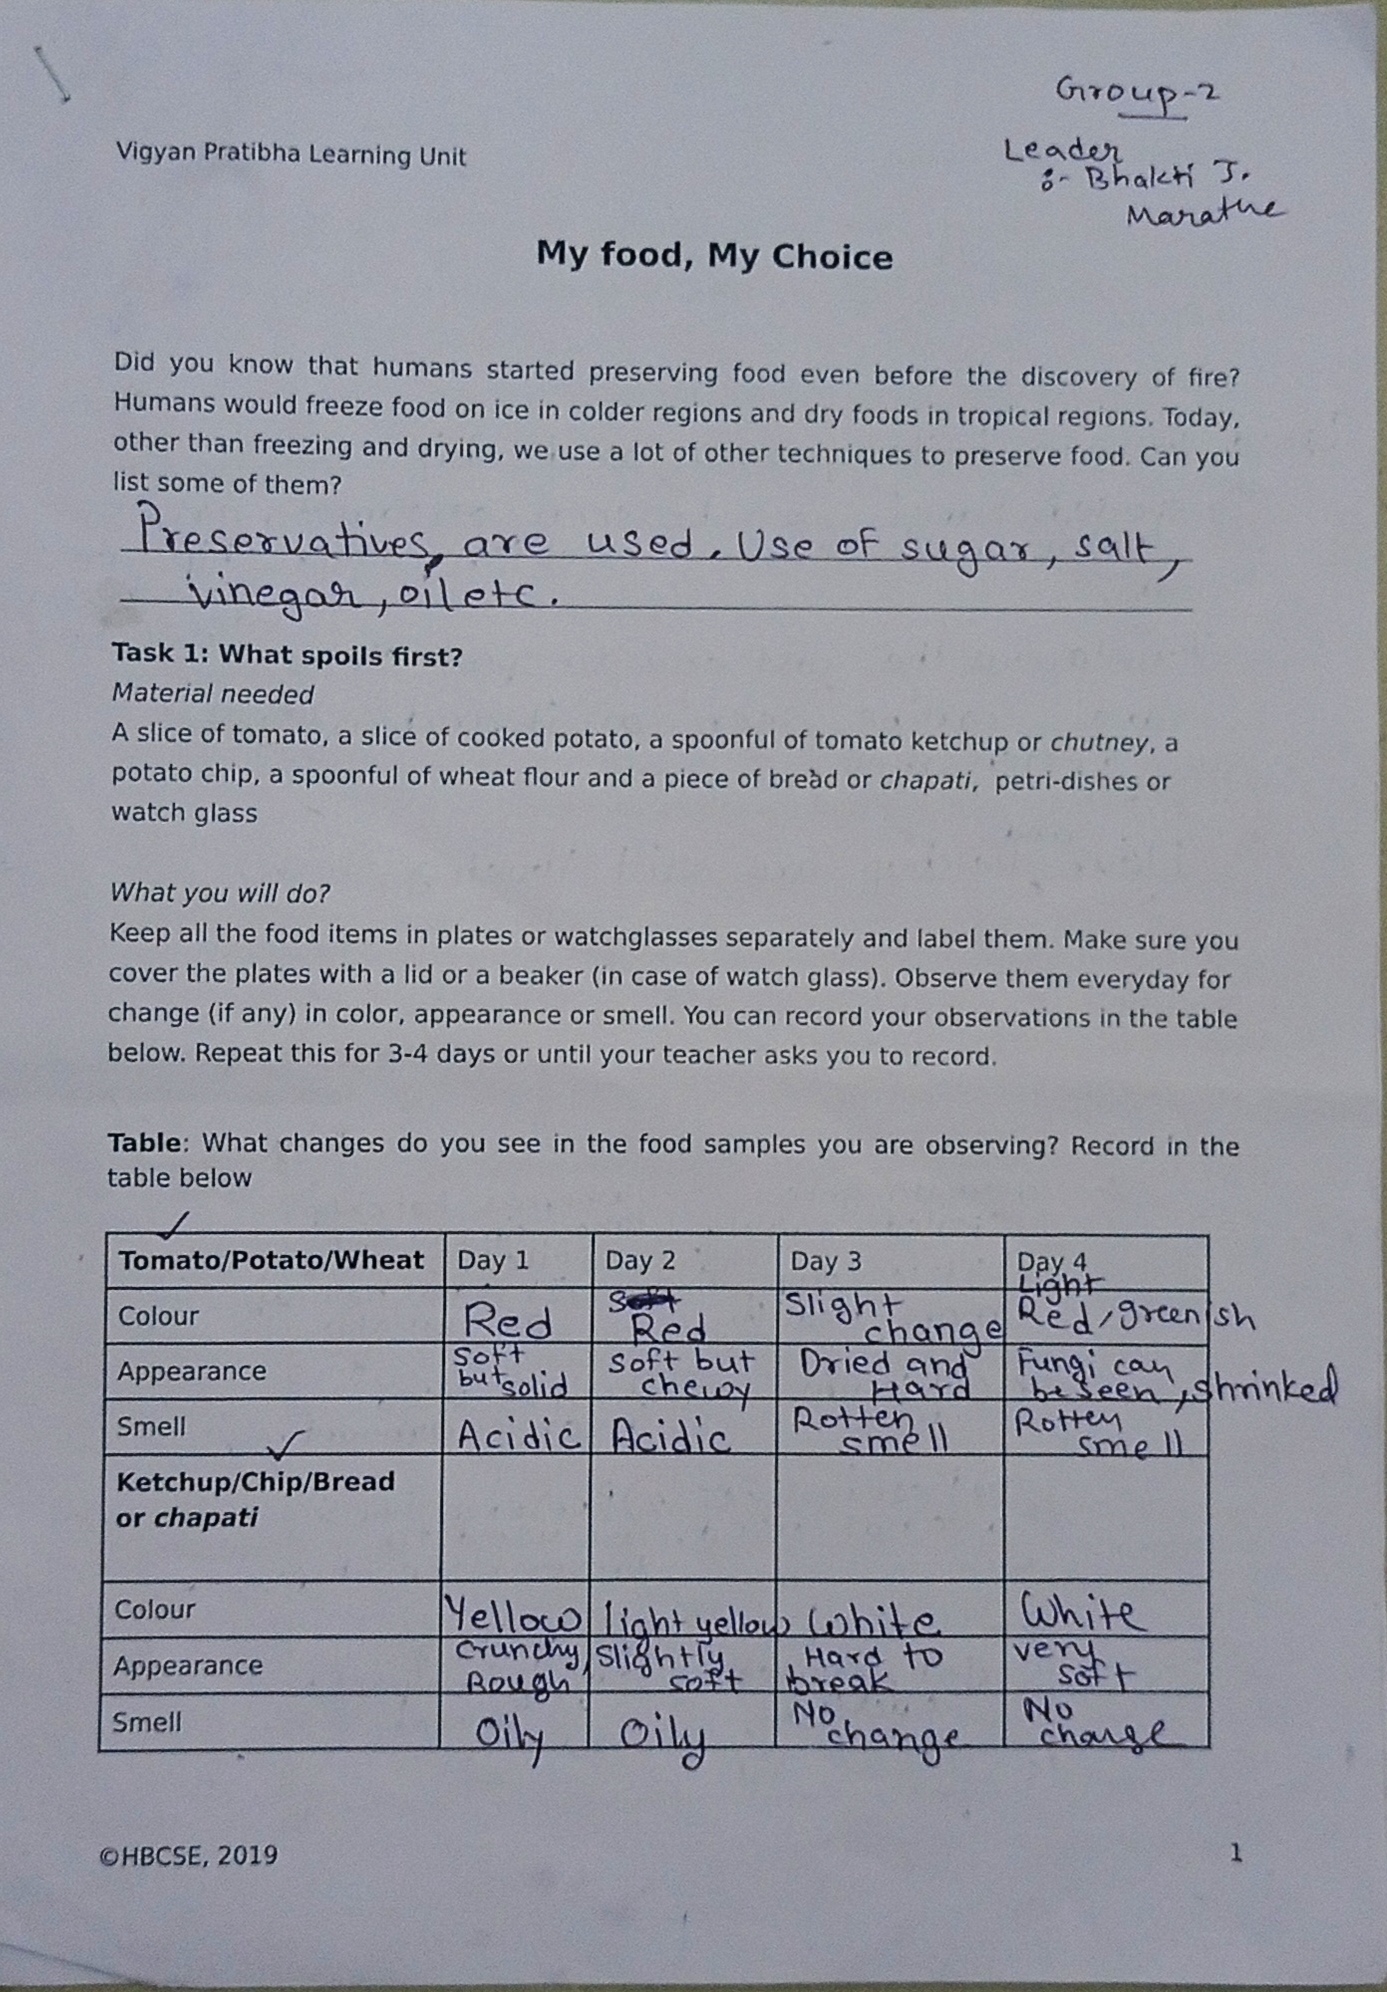 Group-2
Leader
:- Bhakti J.
Marathe
Vigyan Pratibha Learning Unit
My food, My Choice
Did you know that humans started preserving food even before the discovery of fire?
Humans would freeze food on ice in colder regions and dry foods in tropical regions. Today,
other than freezing and drying, we use a lot of other techniques to preserve food. Can you
list some of them?
Preservatives, are used. Use of sugar, salt,
vinegar, oil etc.
Task 1: What spoils first?
Material needed
A slice of tomato, a slice of cooked potato, a spoonful of tomato ketchup or chutney, a
potato chip, a spoonful of wheat flour and a piece of bread or chapati, petri-dishes or
watch glass
What you will do?
Keep all the food items in plates or watchglasses separately and label them. Make sure you
cover the plates with a lid or a beaker (in case of watch glass). Observe them everyday for
change (if any) in color, appearance or smell. You can record your observations in the table
below. Repeat this for 3-4 days or until your teacher asks you to record.
Table: What changes do you see in the food samples you are observing? Record in the
table below
Tomato/Potato/Wheat Day 1 Day 2 Day 3 Day 4
Colour Red Red Slight change Light Red, greenish
Appearance Soft but solid Soft but chewy Dried and Hard Fungi can be seen, shrinked
Smell Acidic Acidic Rotten smell Rotten smell
Ketchup/Chip/Bread
or chapati
Colour Yellow light yellow White White
Appearance Crunchy, Rough Slightly soft Hard to break very soft
Smell Oily Oily No change No change
©HBCSE, 2019
1